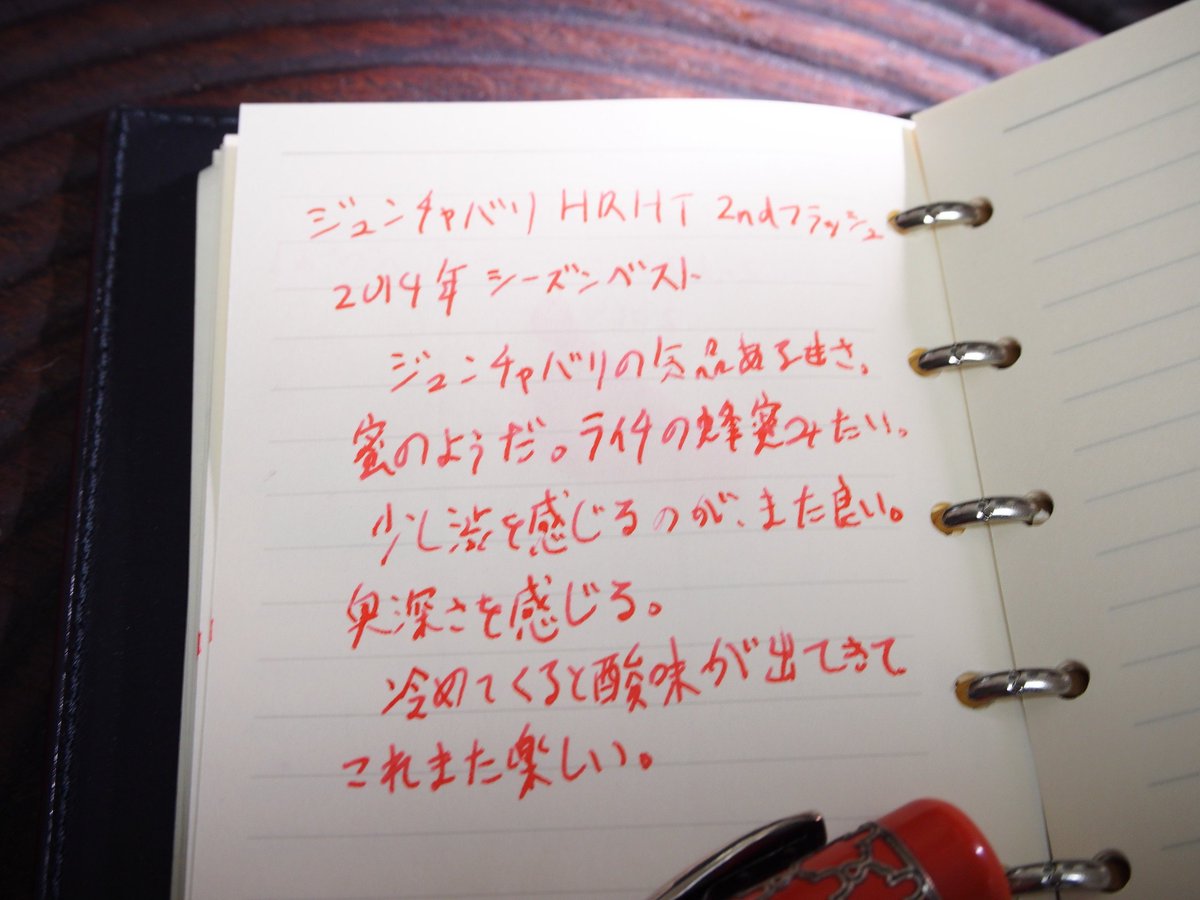 ジュンチャバリ HRHT 2ndフラッシュ
2014年 シーズンベスト
ジュンチャバリの気品ある甘さ。
蜜のようだ。ライチの蜂蜜みたい。
少し渋を感じるのが、また良い。
奥深さを感じる。
冷めてくると酸味が出てきて
これまた楽しい。